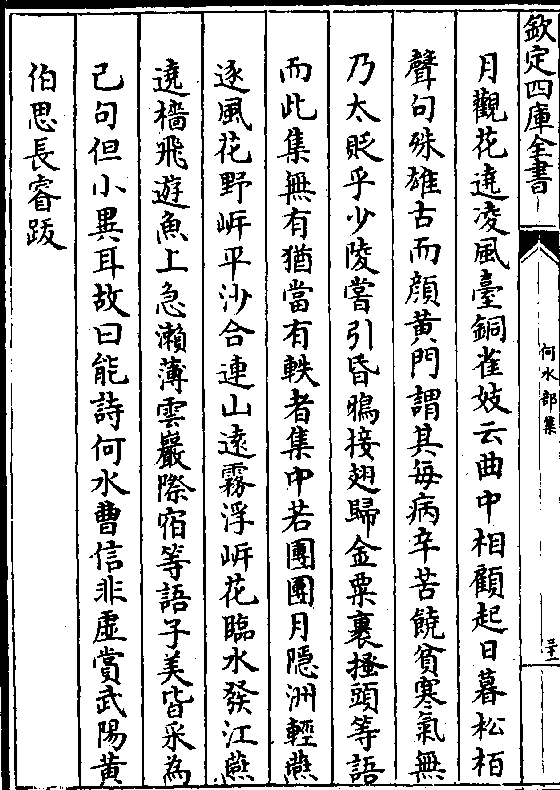 欽定四庫全書
何水部集
三十一
月觀花遶凌風臺銅雀妓云曲中相顧起日暮松栢
聲句殊雄古而顔黄門謂其每病辛苦饒貧寒氣無
乃太貶乎少陵嘗引昏鵶接翅歸金粟裹搔頭等語
而此集無有猶當有軼者集中若團團月隱洲輕燕
逐風花野㟁平沙合連山逺霧浮㟁花臨水發江燕
遶檣飛遊魚上急瀨薄雲巖際宿等語子美皆采為
己句但小異耳故曰能詩何水曹信非虛賞武陽黄
伯思長睿跋